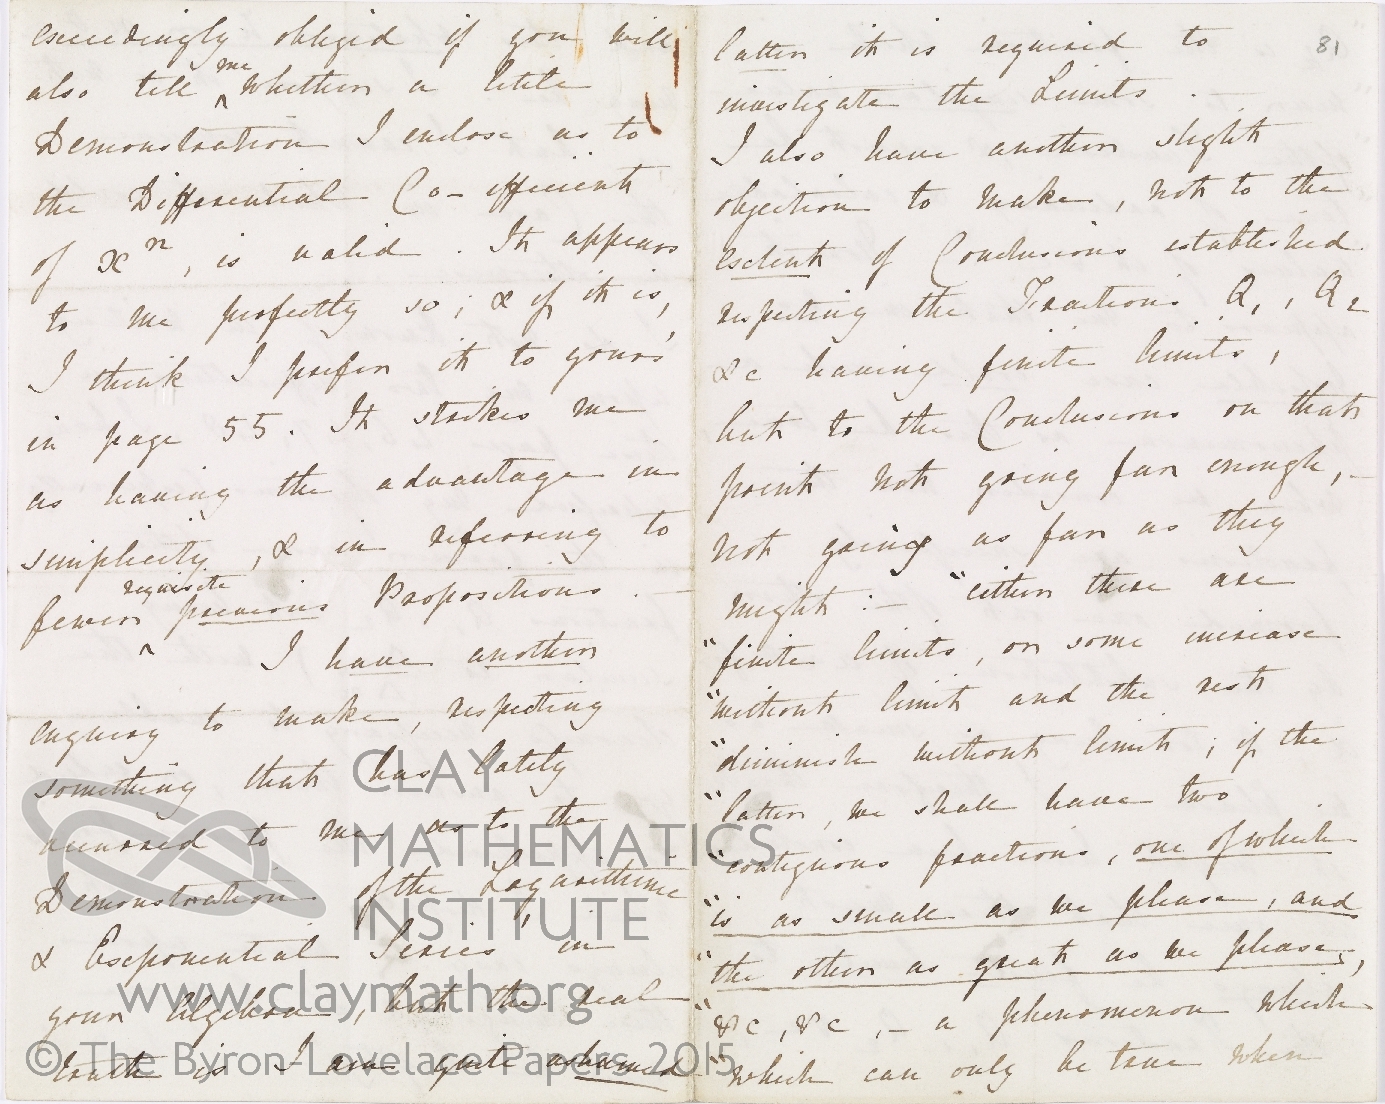 exceedingly obliged if you will
also tell me whether a little
Demonstration I enclose as to
the Differential Co-efficient
of xⁿ, is valid. It appears
to me perfectly so; & if it is,
I think I prefer it to your's
in page 55. It strikes me
as having the advantage in
simplicity, & in referring to
fewer requisite previous Propositions. —
I have another
enquiry to make, respecting
something that has lately
occurred to me as to the
Demonstration of the Logarithmic
& Exponential Series in
your Algebra, but the real
truth is I am quite ashamed
81
latter it is required to
investigate the Limits. —
I also have another slight
objection to make, not to the
extent of Conclusions established
respecting the Fractions Q₁, Q₂
&c having finite limits,
but to the Conclusions on that
point not going far enough, —
not going as far as they
might: — "either there are
"finite limits, or some increase
"without limit and the rest
"diminish without limit; if the
"latter, we shall have two
"contiguous fractions, one of which
"is as small as we please, and
"the other as great as we please,
"&c, &c, — a phenomenon which
"which can only be true when
CLAY
MATHEMATICS
INSTITUTE
www.claymath.org
© The Byron-Lovelace Papers 2015